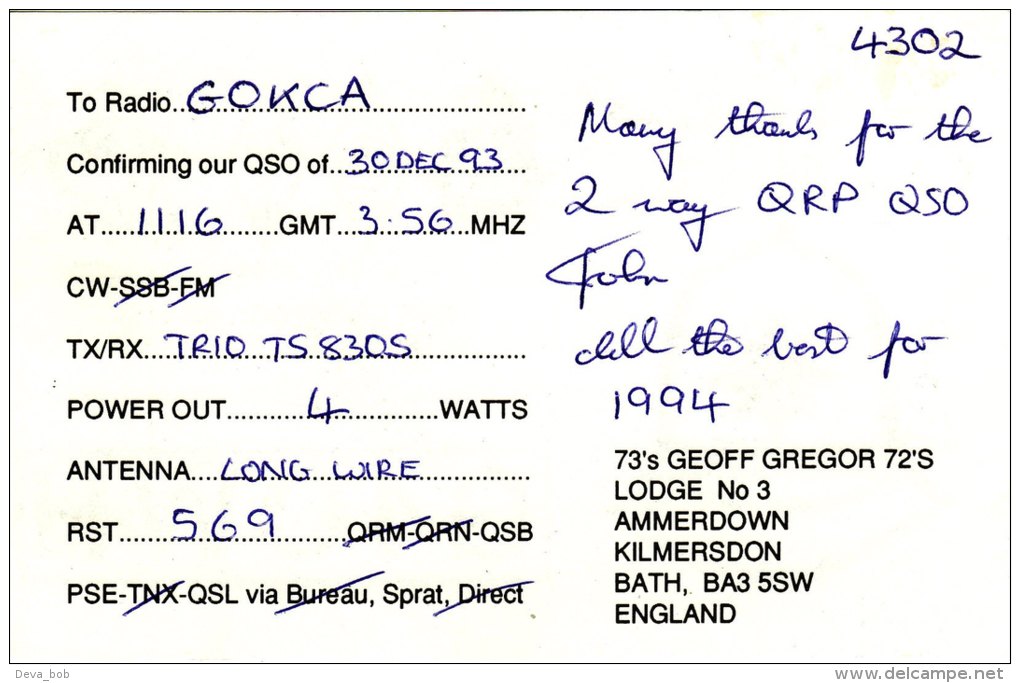 4302
To Radio..GOKCA
Confirming our QSO of...30 DEC 93....
AT.....1116........GMT...3.56...MHZ
CW-SSB-FM
TX/RX....TRIO TS 830S
POWER OUT............4..............WATTS
ANTENNA....LONG WIRE
RST........569........QRM-QRN-QSB
PSE-TNX-QSL via Bureau, Sprat, Direct
Many thanks for the
2 way QRP QSO
John
All the best for
1994
73's GEOFF GREGOR 72'S
LODGE No 3
AMMERDOWN
KILMERSDON
BATH, BA3 5SW
ENGLAND
Deva_bob
www.delcampe.net